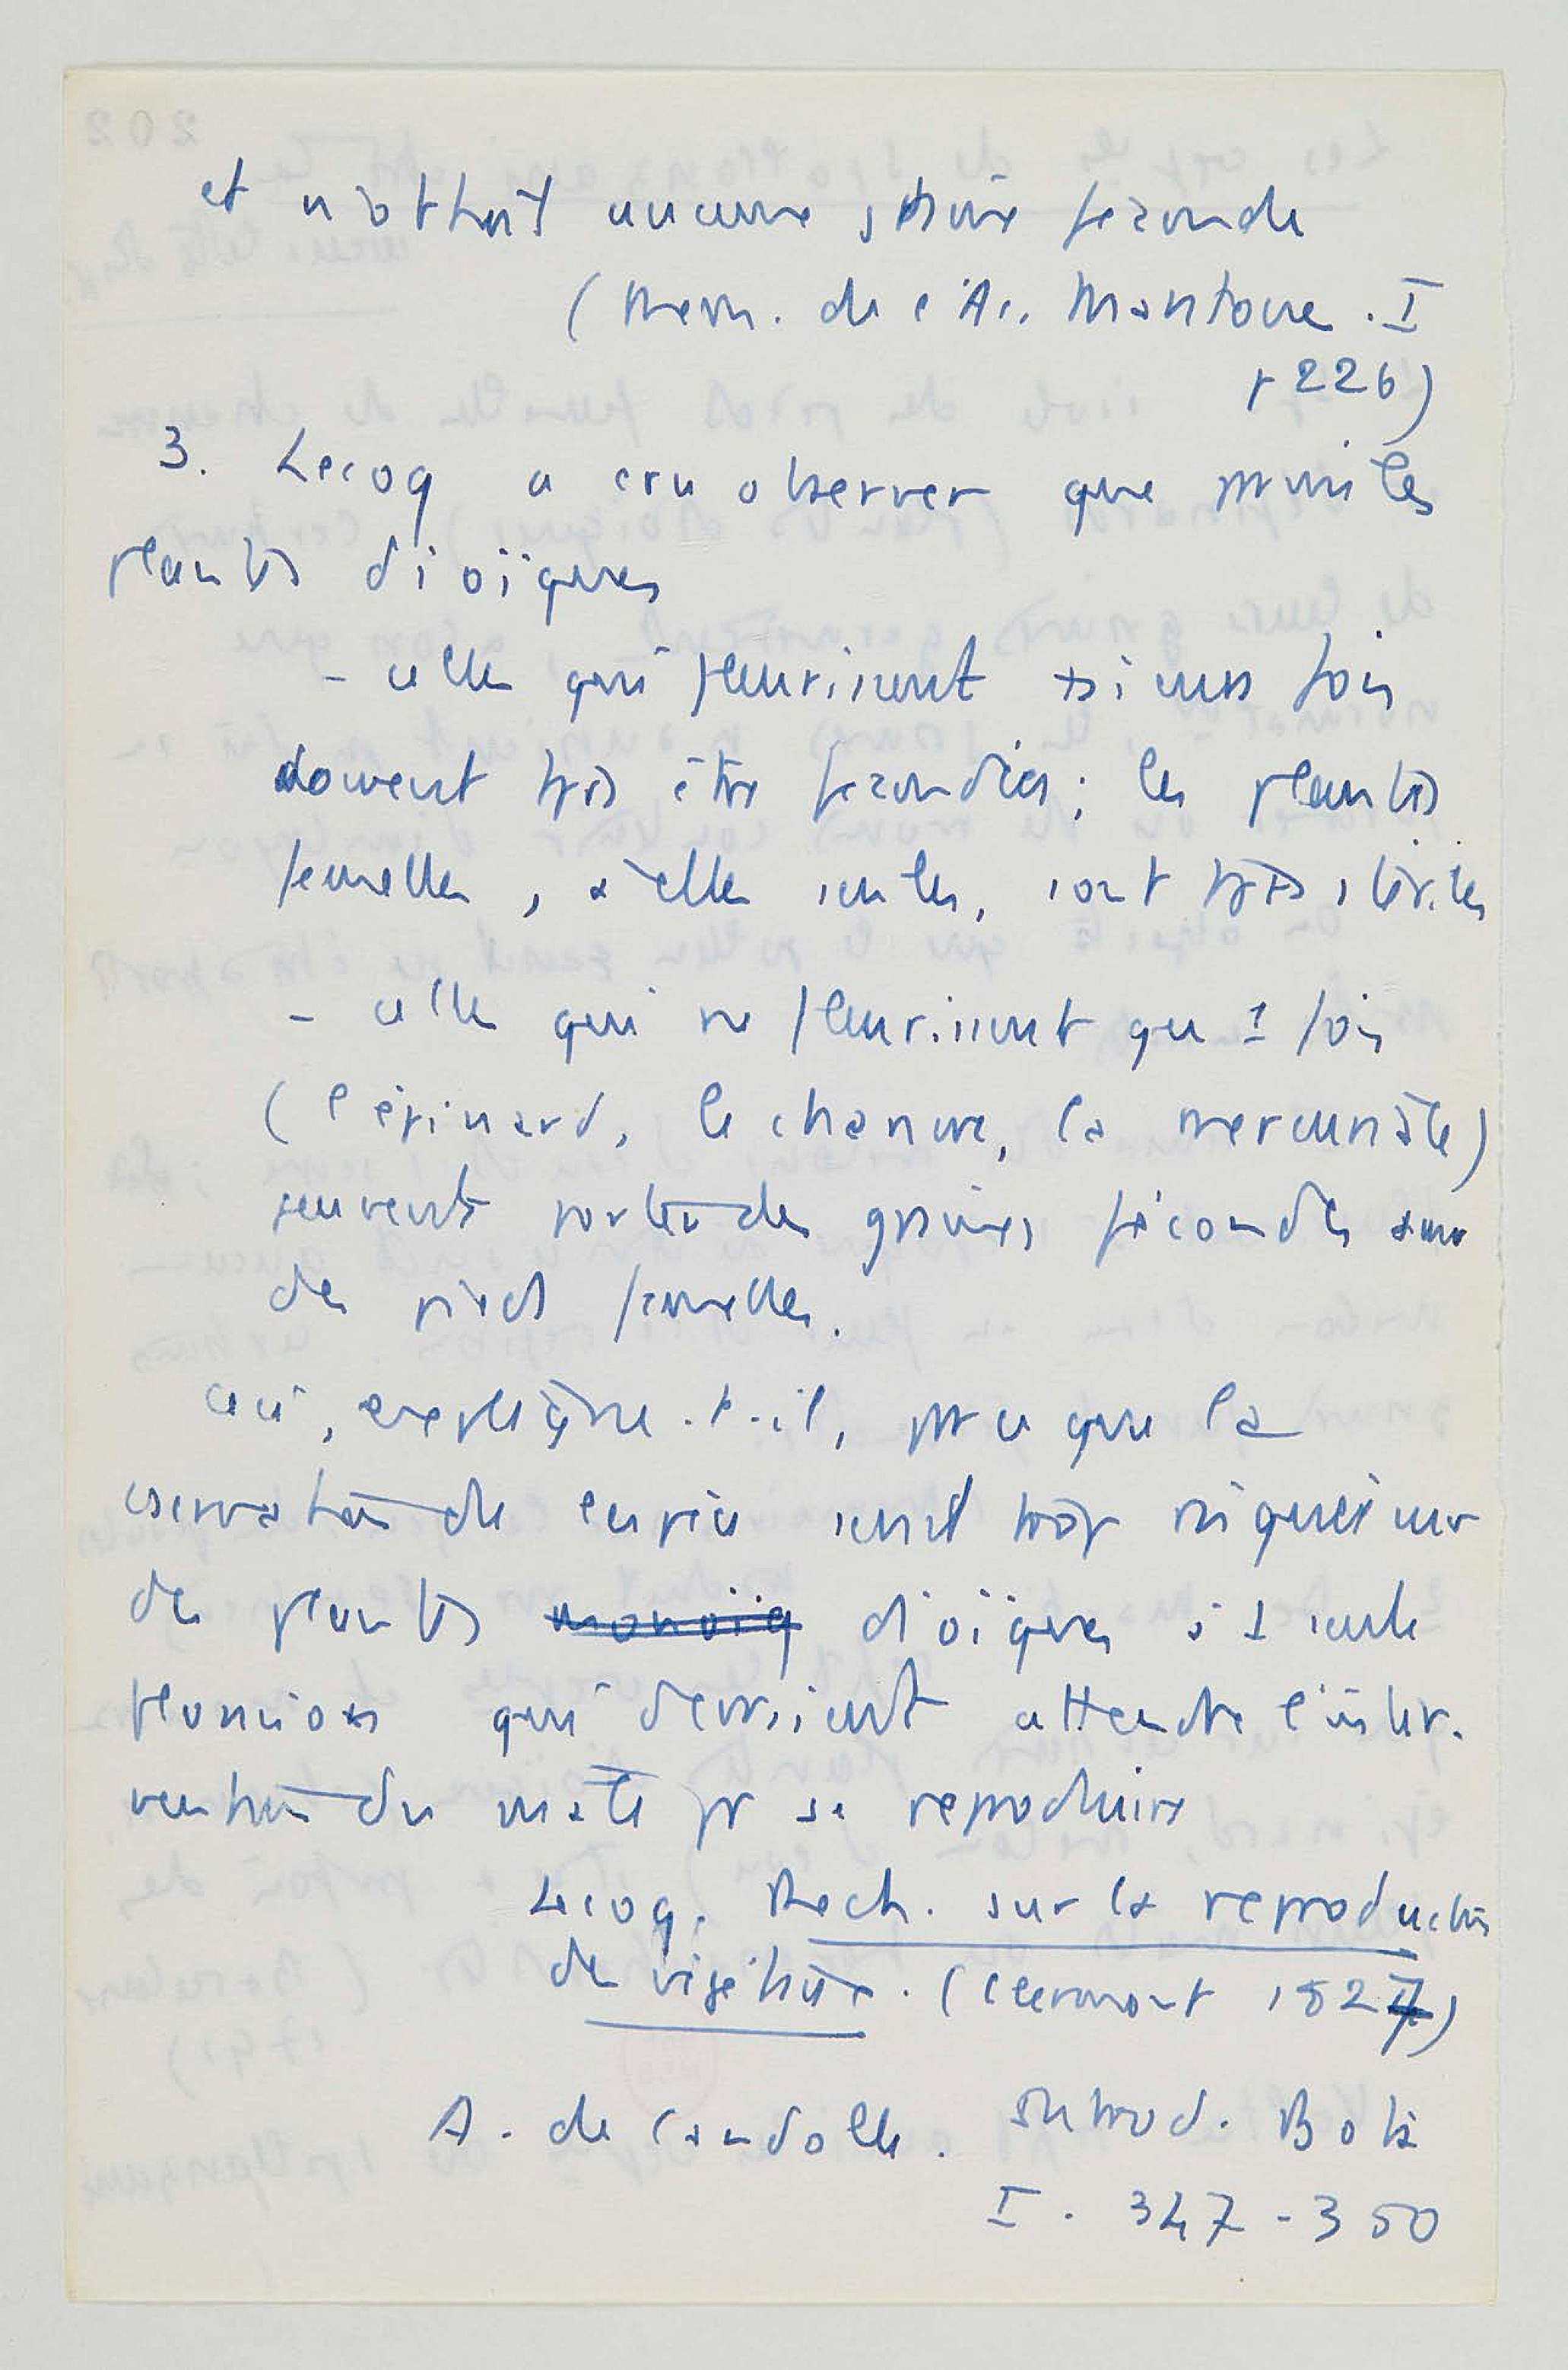 et n'obtient aucune graine féconde
(Mem. de l'Ac. Mantoue. I
p 226)
3. Lecoq a cru observer que parmi les
plantes dioïques
- celles qui fleurissent plusieurs fois
doivent tjrs être fécondées ; les plantes
femelles, si elles seules, sont tjrs stériles
- celles qui ne fleurissent que 1 fois
(l'épinard, le chanvre, la mercuriale)
peuvent porter des graines fécondes sur
des pieds femelles.
Ceci, explique-t-il, pr ce que la
conservation de l'espèce serait trop risquée sur
des plantes monoïq dioïques à 1 seule
floraison qui devraient attendre l'inter-
vention du mâle pr se reproduire
Lecoq. Rech. sur la reproduction
des végétaux. (Clermont 1827)
A. de Candolle. Introd. Bota
I. 347-350